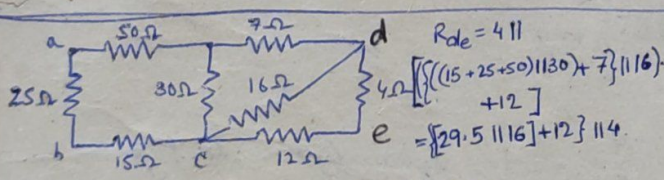 50Ω
7Ω
a
d
25Ω
30Ω
16Ω
4Ω
b
15Ω
c
12Ω
e
Rde = 4 ||
[{((15+25+50)||30)+7}||16)
+12]
={[29.5||16]+12}||4.